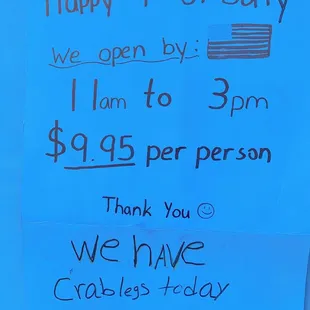 Happy
we open by:
11am to 3pm
$9.95 per person
Thank You
We HAVE
Crablegs today